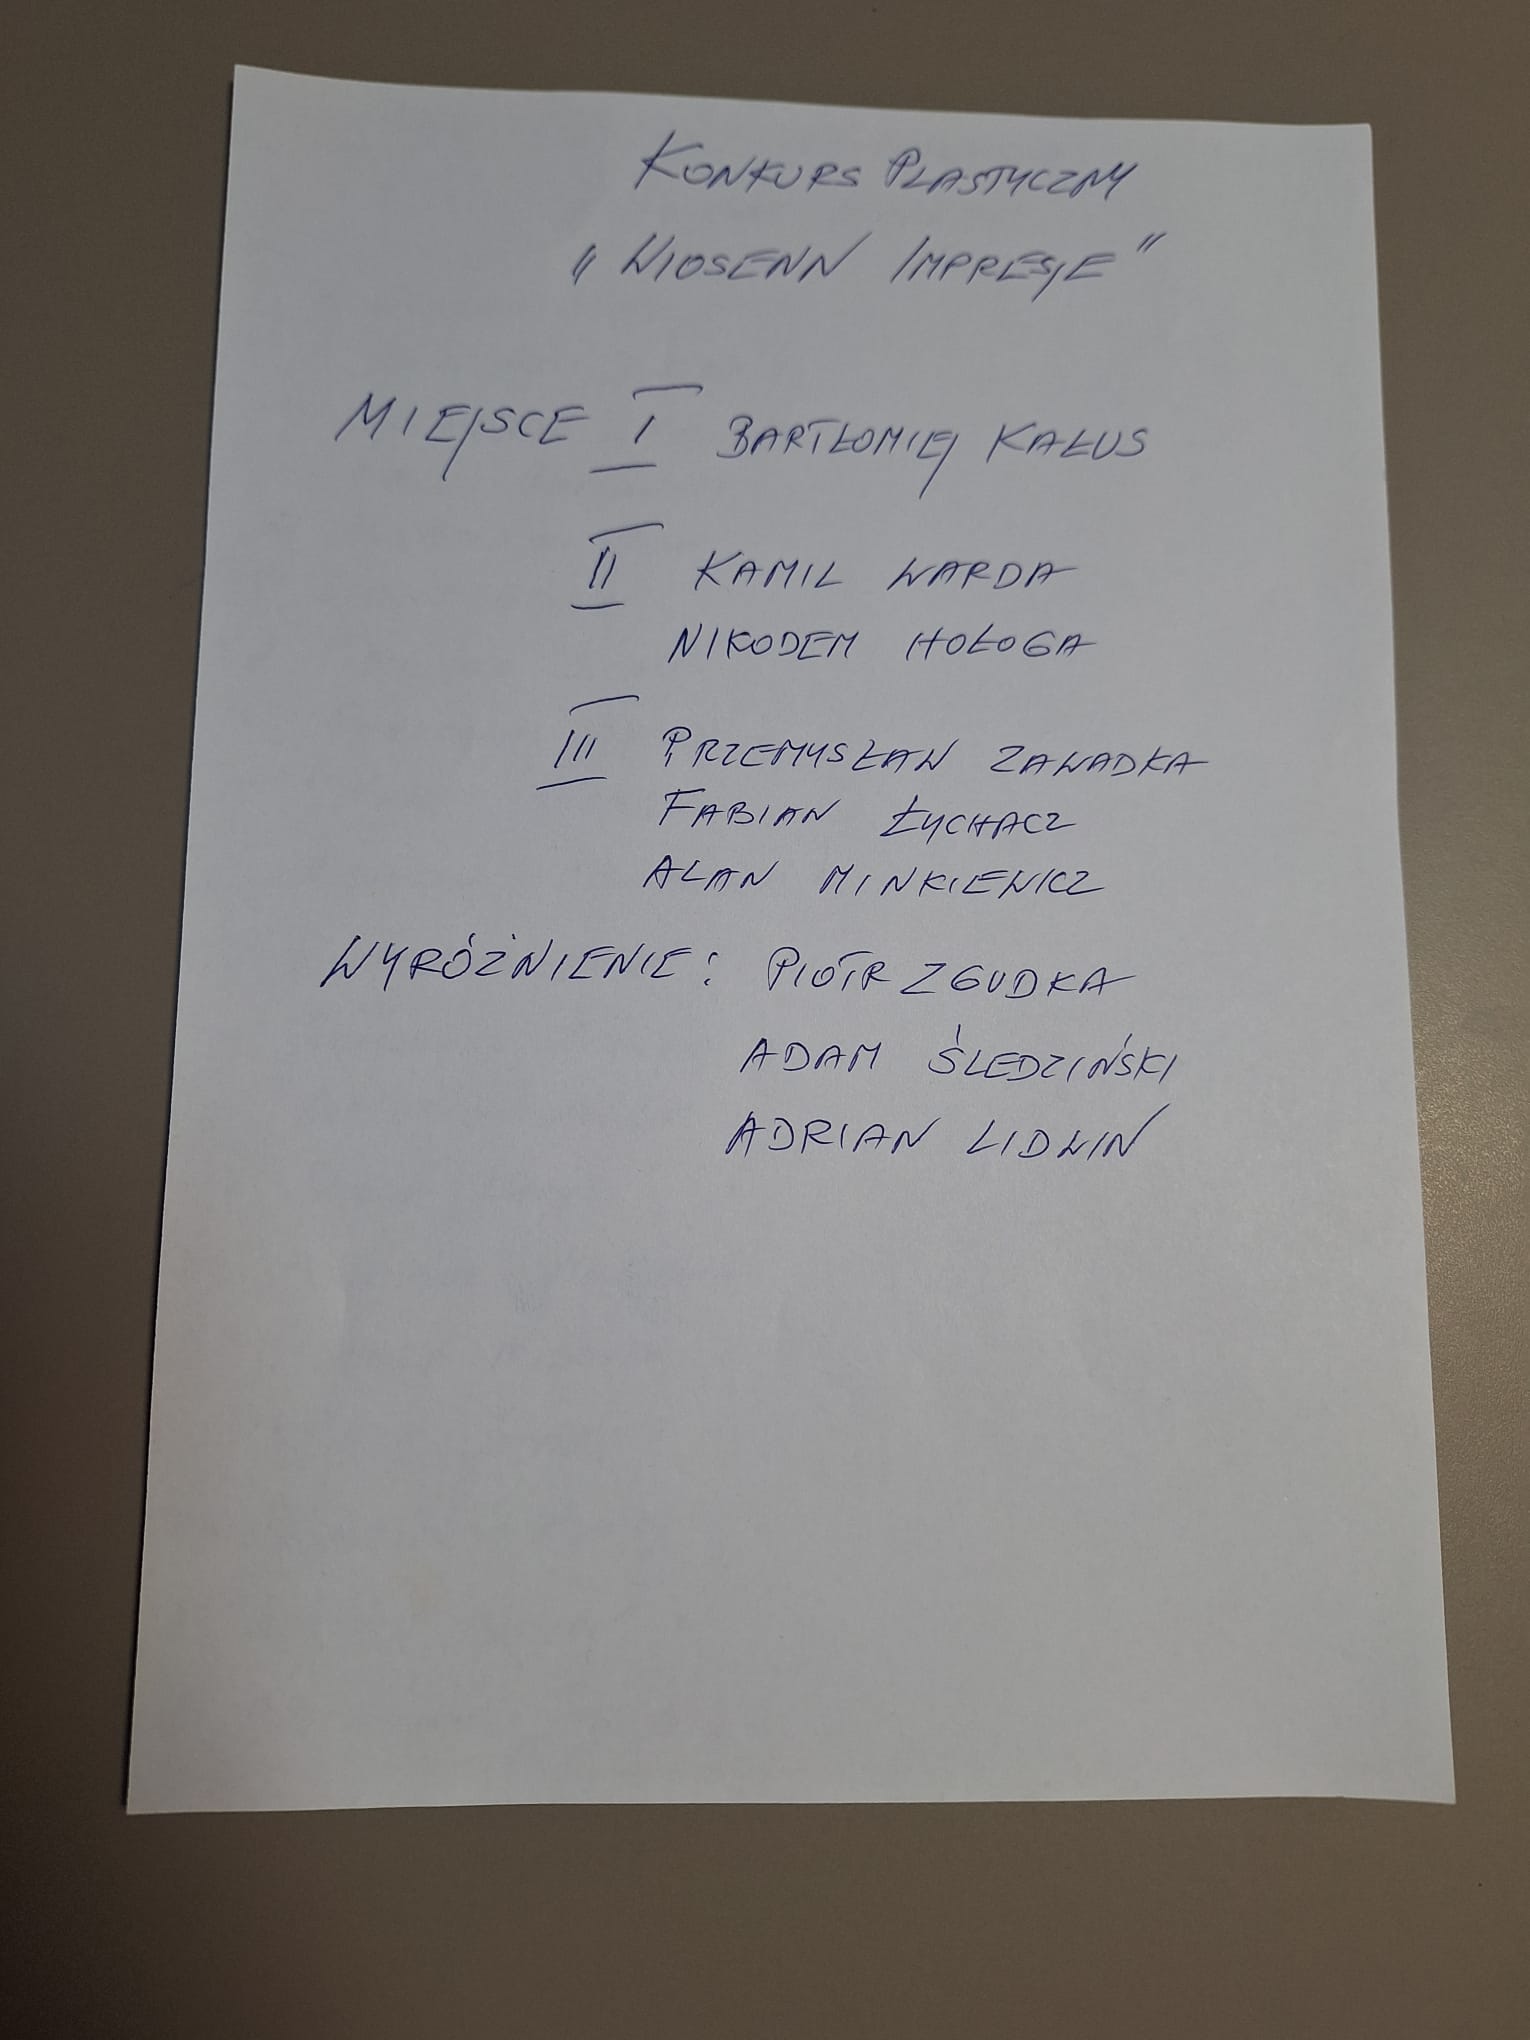 KONKURS PLASTYCZNY
„WIOSENN IMPRESJE"
MIEJSCE I BARTŁOMIEJ KAŁUS
II KAMIL WARDA
NIKODEM HOŁOGA
III PRZEMYSŁAW ZAWADKA
FABIAN ŁYCHACZ
ALAN MINKIEWICZ
WYRÓŻNIENIE: PIOTR ZGUDKA
ADAM ŚLEDZIŃSKI
ADRIAN LIDWIN